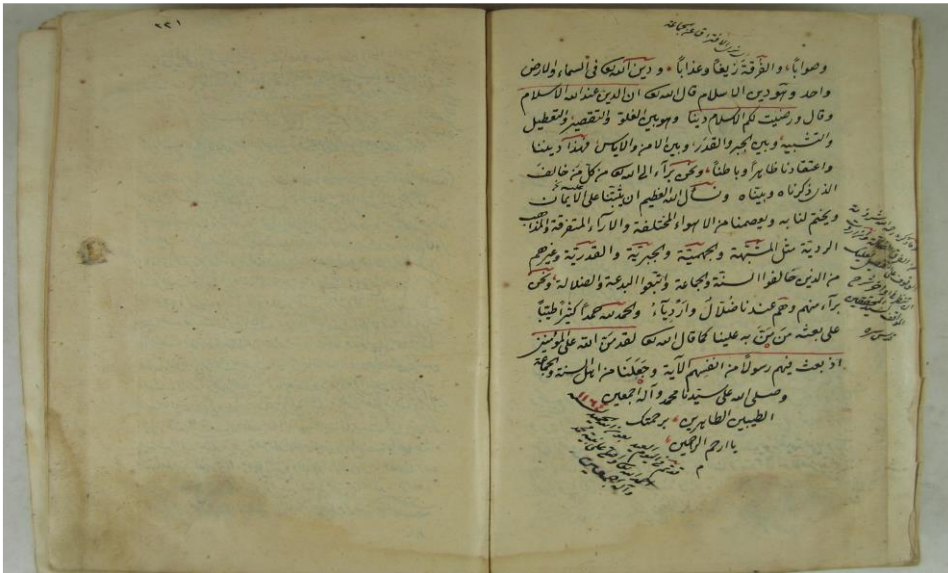 وصوابا، والفرقة زيغا وعذابا، ودين الله تع في السماء والارض
واحد وهو دين الاسلام قال الله تع ان الدين عند الله الاسلام
وقال ورضيت لكم الاسلام دينا وهو بين الغلو والتقصير والتعطيل
والتشبيه وبين الجبر والقدر وبين الامن والاياس فهذا ديننا
واعتقادنا ظاهرا وباطنا، ونحن برآء الى الله تع من كل من خالف
الذي ذكرناه وبيناه ونسأل الله العظيم ان يثبتنا على الايمان
ويختم لنا به ويعصمنا من الاهواء المختلفة والآراء المتفرقة والمذاهب
الردية مثل المشبهة والجهمية والجبرية والقدرية وغيرهم
من الذين خالفوا السنة والجماعة واتبعوا البدعة والضلالة، ونحن
برآء منهم وهم عندنا ضلال وارديآء والحمد لله حمدا كثيرا طيبا
على بعثه من من به علينا كما قال الله تع لقد من الله على المؤمنين
اذ بعث فيهم رسولا من انفسهم الآية وجعلنا من اهل السنة والجماعة
وصلى الله على سيدنا محمد وآله اجمعين
الطيبين الطاهرين، برحمتك
يا ارحم الراحمين،
م
وآله اجمعين
٢٢١